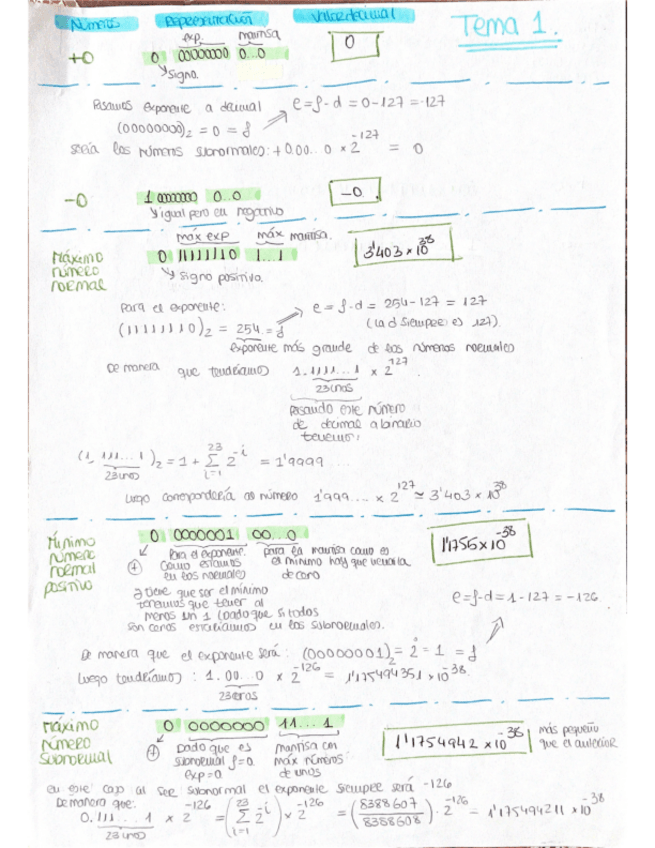 Número Representación Valor decimal Tema 1.
exp. mantisa
+0 0 00000000 0...0 0
signo.
Pasamos exponente a decimal e=f-d=0-127=-127
(00000000)₂ = 0 = f
sería los números subnormales: +0.00...0 × 2^-127 = 0
-0 1 00000000 0..0 -0
igual pero en negativo
máx exp máx mantisa.
Máximo número normal 0 11111110 1...1 3'403 × 10^38
signo positivo.
Para el exponente: e = f-d = 254-127 = 127
(11111110)₂ = 254 = f (la d siempre es 127).
exponente más grande de los números normales
De manera que tendríamos 1.1111...1 × 2^127
23 unos
pasando este número
de decimal a binario
tenemos:
(1.111...1)₂ = 1 + Σ 2^-i = 1'9999...
23 unos i=1 23
Luego correspondería al número 1'999.... × 2^127 ≃ 3'403 × 10^38
Mínimo número normal positivo 0 0000001 00...0 1'1755 × 10^-38
+ Para el exponente. para la mantisa como es
como estamos el mínimo hay que usarla
en los normales de cero
y tiene que ser el mínimo
tenemos que tener al e=f-d=1-127=-126
menos un 1 (dado que si todos
son ceros estaríamos en los subnormales.
De manera que el exponente será: (00000001)₂ = 2^0 = 1 = f
Luego tendríamos: 1.00..0 × 2^-126 = 1'175494351 × 10^-38.
23 ceros
Máximo número subnormal 0 0000000 11...1 1'1754942 × 10^-38 más pequeño
que el anterior
+ Dado que es mantisa con
subnormal f=0. máx números
exp=0 de unos
en este caso al ser subnormal el exponente siempre será -126
De manera que:
0.111...1 × 2^-126 = (Σ 2^-i) × 2^-126 = (8388607/8388608) · 2^-126 = 1'175494211 × 10^-38
23 unos i=1 23